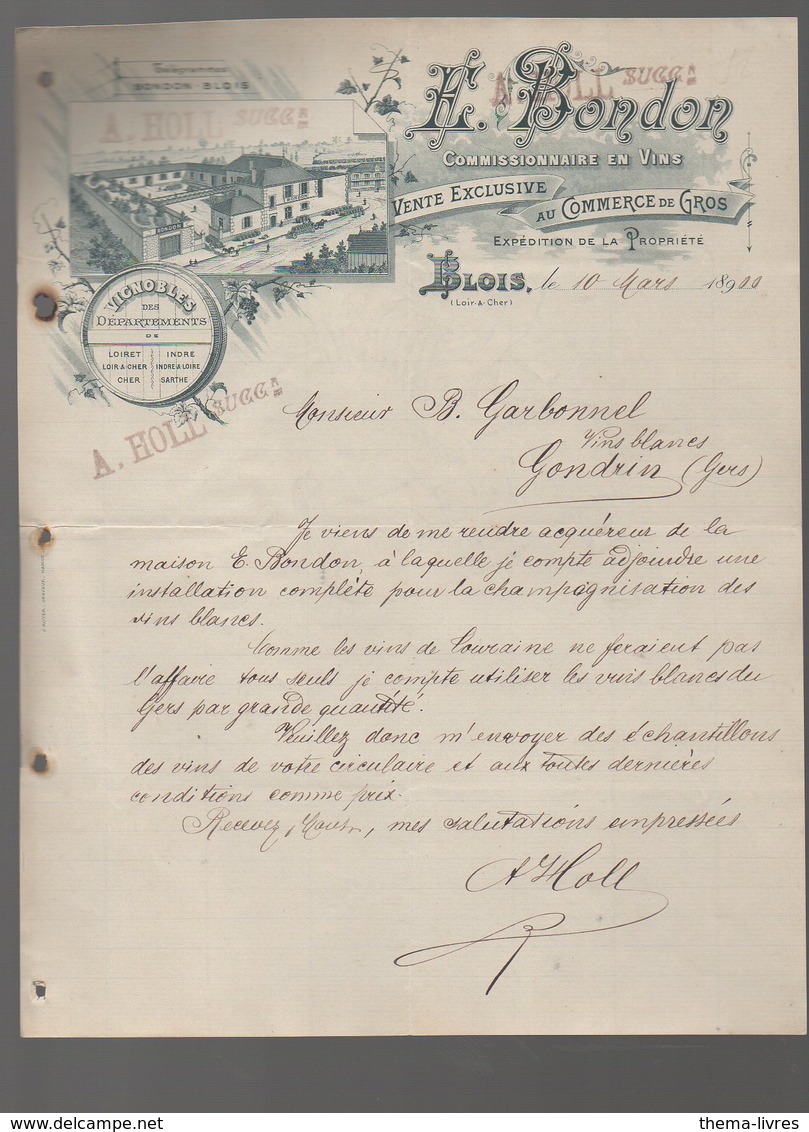 Télégrammes
BONDON-BLOIS
A. HOLL SUCCR
BONDON
E. Bondon
A. HOLL SUCCR
COMMISSIONNAIRE EN VINS
VENTE EXCLUSIVE
AU COMMERCE DE GROS
EXPÉDITION DE LA PROPRIÉTÉ
BLOIS, le 10 Mars 1900
(Loir-&-Cher)
VIGNOBLES
DES
DÉPARTEMENTS
DE
LOIRET INDRE
LOIR-&-CHER INDRE-&-LOIRE
CHER SARTHE
A. HOLL SUCCR
Monsieur B. Garbonnel
Vins blancs
Gondrin (Gers)
Je viens de me rendre acquéreur de la
maison E. Bondon, à laquelle je compte adjoindre une
installation complète pour la champagnisation des
vins blancs.
Comme les vins de Touraine ne feraient pas
l'affaire tous seuls je compte utiliser les vins blancs du
Gers par grande quantité.
Veuillez donc m'envoyer des échantillons
des vins de votre circulaire et aux toutes dernières
conditions comme prix.
Recevez, Monsr, mes salutations empressées
A Holl
thema-livres